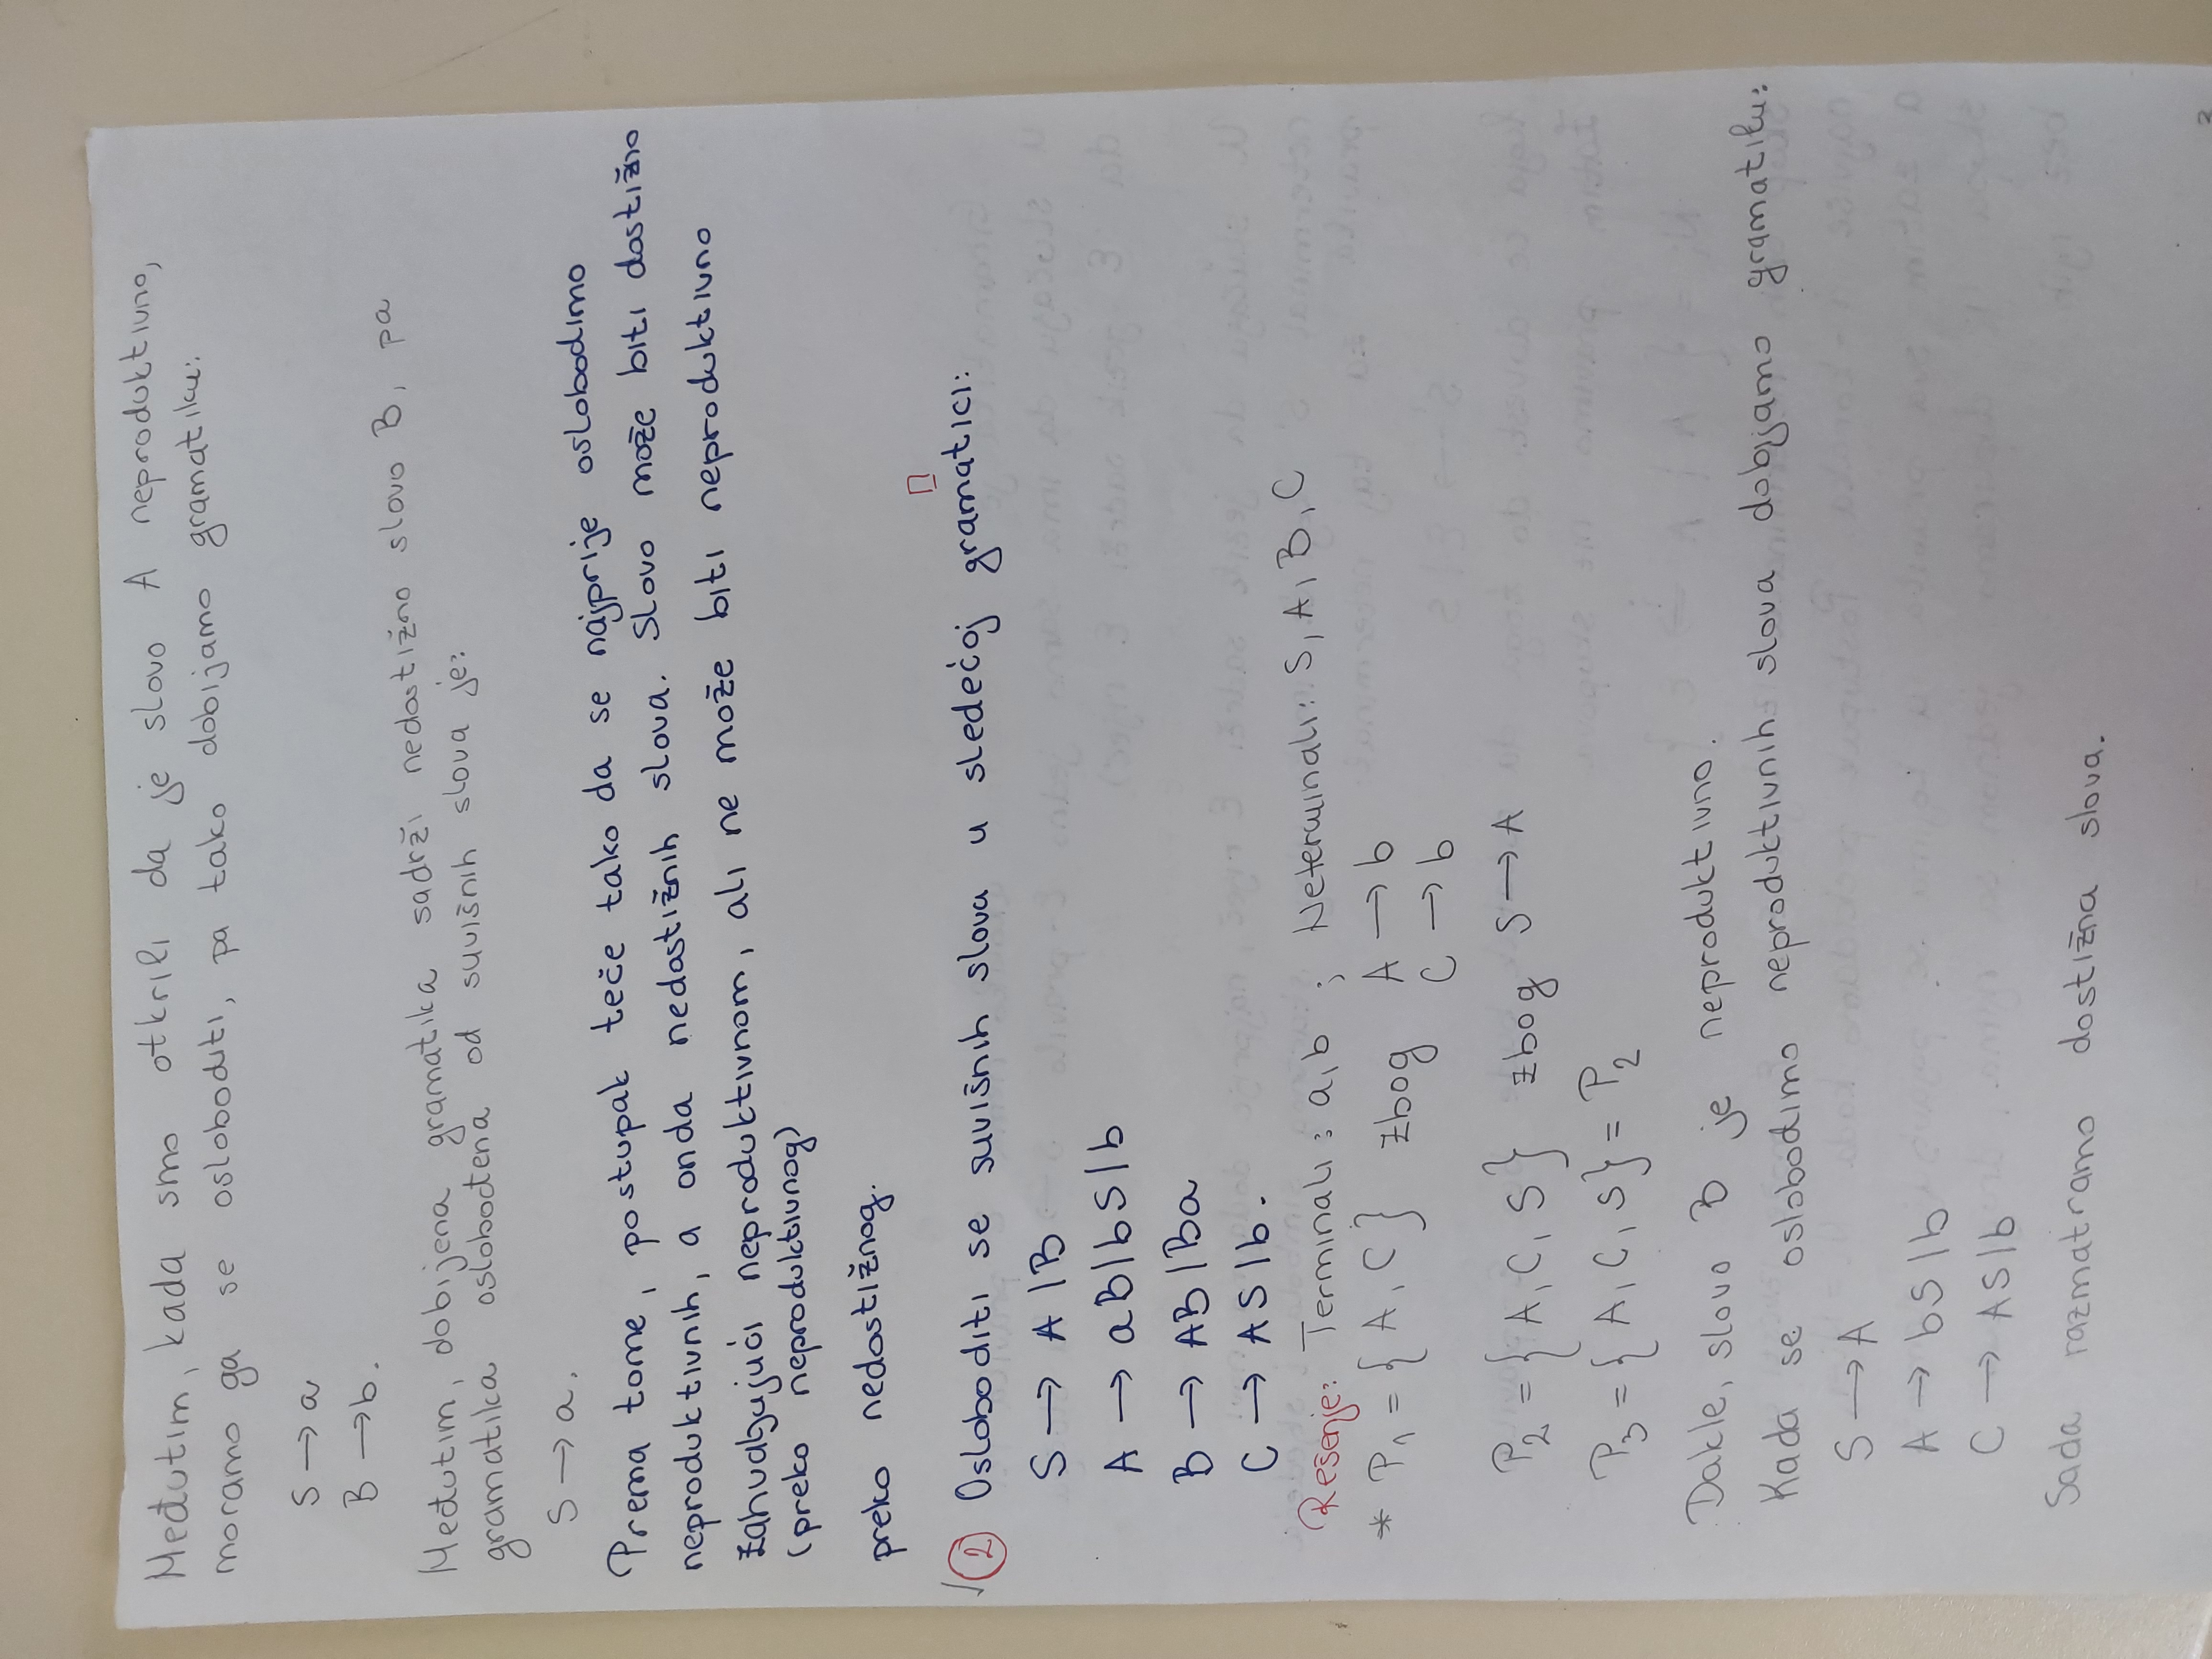 Međutim, kada smo otkrili da je slovo A neproduktivno,
moramo ga se osloboditi, pa tako dobijamo gramatiku:
S → a
B → b.
Međutim, dobijena gramatika sadrži nedostižno slovo B, pa
gramatika oslobođena od suvišnih slova je:
S → a.
Prema tome, postupak teče tako da se najprije oslobodimo
neproduktivnih, a onda nedostižnih slova. Slovo može biti dostižno
zahvaljujući neproduktivnom, ali ne može biti neproduktivno
(preko neproduktivnog)
preko nedostižnog.
② Osloboditi se suvišnih slova u sledećoj gramatici:
S → A | B
A → aB | bS | b
B → AB | Ba
C → AS | b.
Rešenje: Terminali: a, b ; Neterminali: S, A, B, C
* P₁ = { A, C } zbog A → b
C → b
P₂ = { A, C, S } zbog S → A
P₃ = { A, C, S } = P₂
Dakle, slovo B je neproduktivno.
Kada se oslobodimo neproduktivnih slova dobijamo gramatiku:
S → A
A → bS | b
C → AS | b
Sada razmatramo dostižna slova.